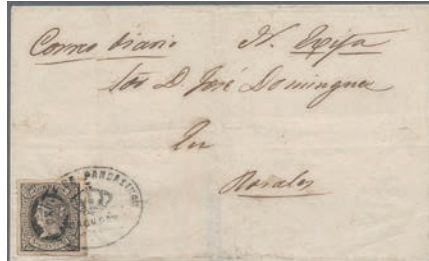 Correo diario N. Ecija
Sor D. José Dominguez
En
Rosales